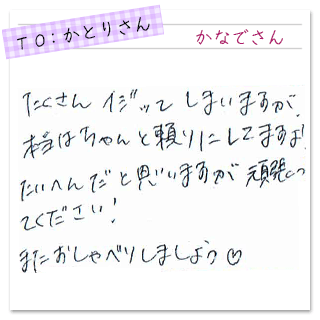 TO:かとりさん
かなでさん
たくさん だッて しまいますが、
本当はちゃんと頼りにしてますよ!
たいへんだと思いますが 頑張っ
てください!
またおしゃべりしましょう♡